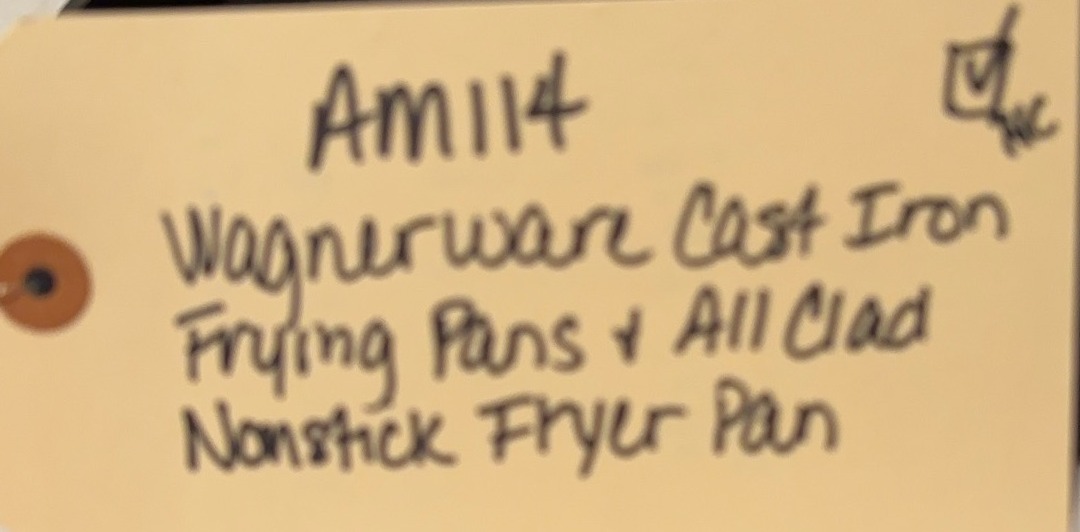 AM114
NC
Wagnerware Cast Iron
Frying Pans & All Clad
Nonstick Fryer Pan